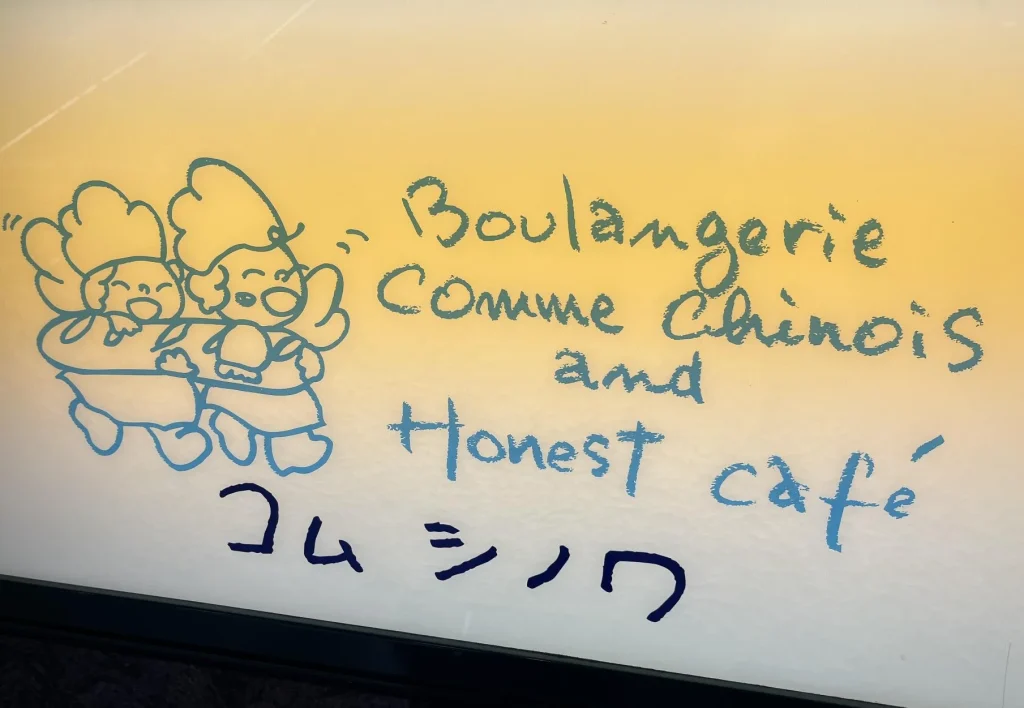 Boulangerie
Comme Chinois
and
Honest café
コム シノワ